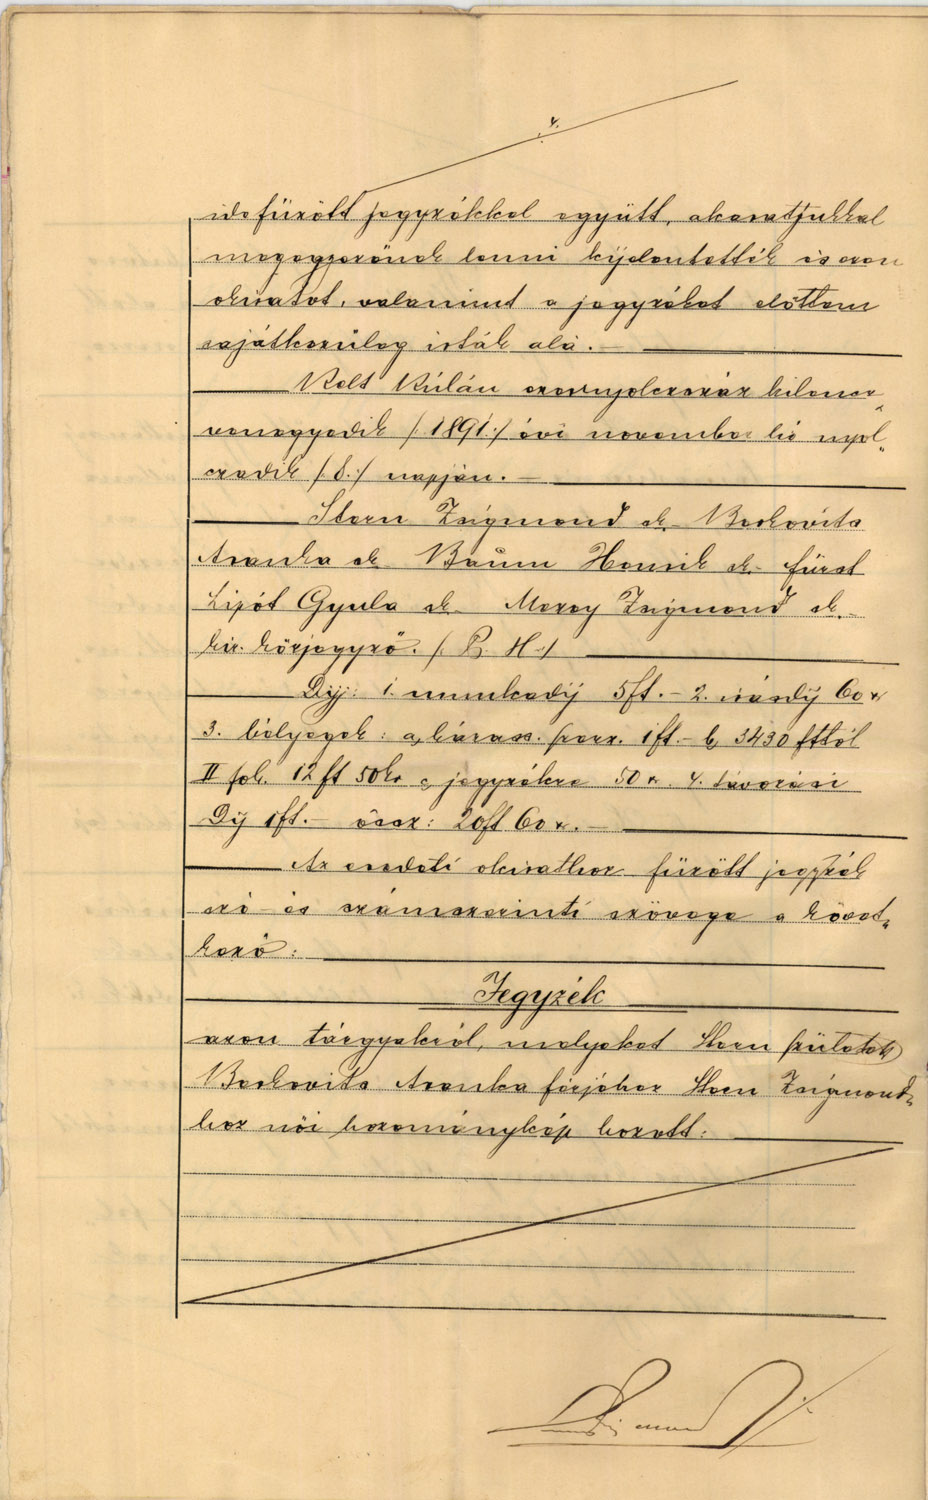 4.
ide fűzött jegyzékkel együtt, akaratjukkal
megegyezőnek lenni kijelentették és ezen
okiratot, valamint a jegyzéket előttem
sajátkezűleg irták alá. —
Kelt Kúlán ezernyolczszáz kilencz„
venegyedik /:1891:/ évi november hó nyol„
czadik /:8.:/ napján. —
Stern Zsigmond sk. Berkovits
Aranka sk Baum Henrik sk. fürst
Lipót Gyula sk Mezey Zsigmond sk. —
kir. közjegyző. /: P. H. :/
Díj: 1. munkadíj 5 ft. — 2. irásdíj 60 x
3. bélyegek: a, házass. szerz. 1 ft. — b, 3430 fttól
II fok. 12 ft 50 kr c, jegyzékre 50 x. 4. távozási
Díj 1 ft. — össz: 20 ft 60 x. —
Az eredeti okirathoz fűzött jegyzék
szó- és számszerinti szövege a követ„
kező:
Jegyzék
azon tárgyakról, melyeket Stern született
Berkovits Aranka férjéhez Stern Zsigmond„
hoz női hozománykép hozott: